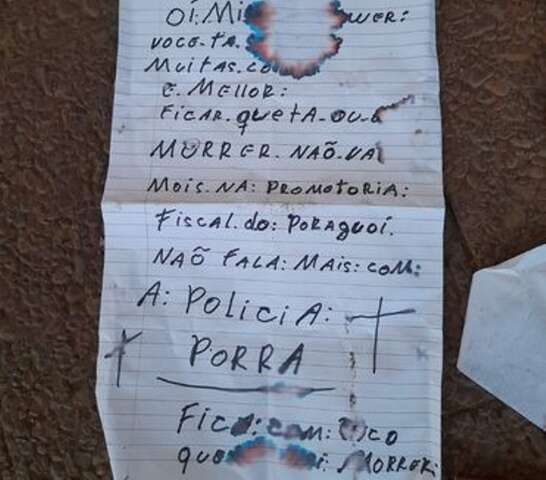 OÍ. MIS
VOCE. TA.
MUITAS. CO
E. MELLOR:
FICAR. QUETA. OU. 
MORRER. NAÕ. VA
MOIS. NA: PROMOTORIA:
FISCAL. DO: PORAGUOI.
NAÕ FALA: MAIS: COM:
A: POLICIA:
PORRA
FICA: COM: 
MORRER: